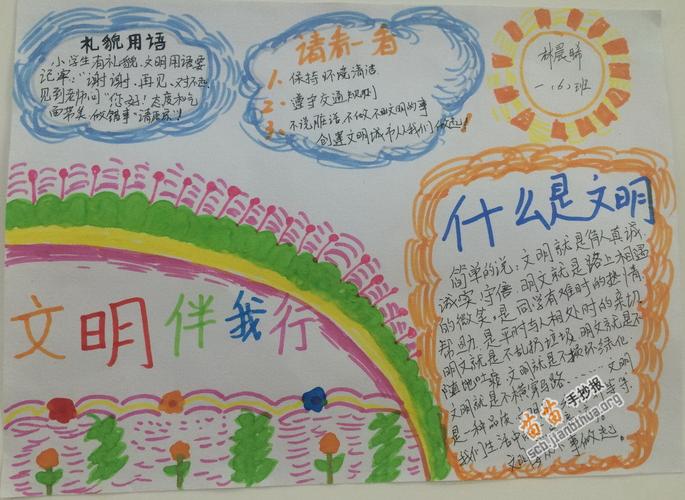 礼貌用语
小学生有礼貌,文明用语要
记牢:"谢谢、再见、对不起
见到老师问"您好!态度和气
面带笑 做错事"请原谅"!
请看一看
1、保持环境清洁
2、遵守交通规则
3、不说脏话不做不文明的事
创建文明城市从我们做起!
林晨晞
一、(6)班
什么是文明
简单的说,文明就是做人真诚
诚实、守信 明文就是路上相遇
的微笑,是同学有难时的热情
帮助,是平时与人相处时的亲切
明文就是不乱扔垃圾 明文就是不
随地吐痰 文明就是不损坏绿化
文明就是不横穿马路……文明
是一种品质 文明
我们生活中
文明 从 下事做起。
文明伴我行
苗苗手抄报
scb.jianbihua.org